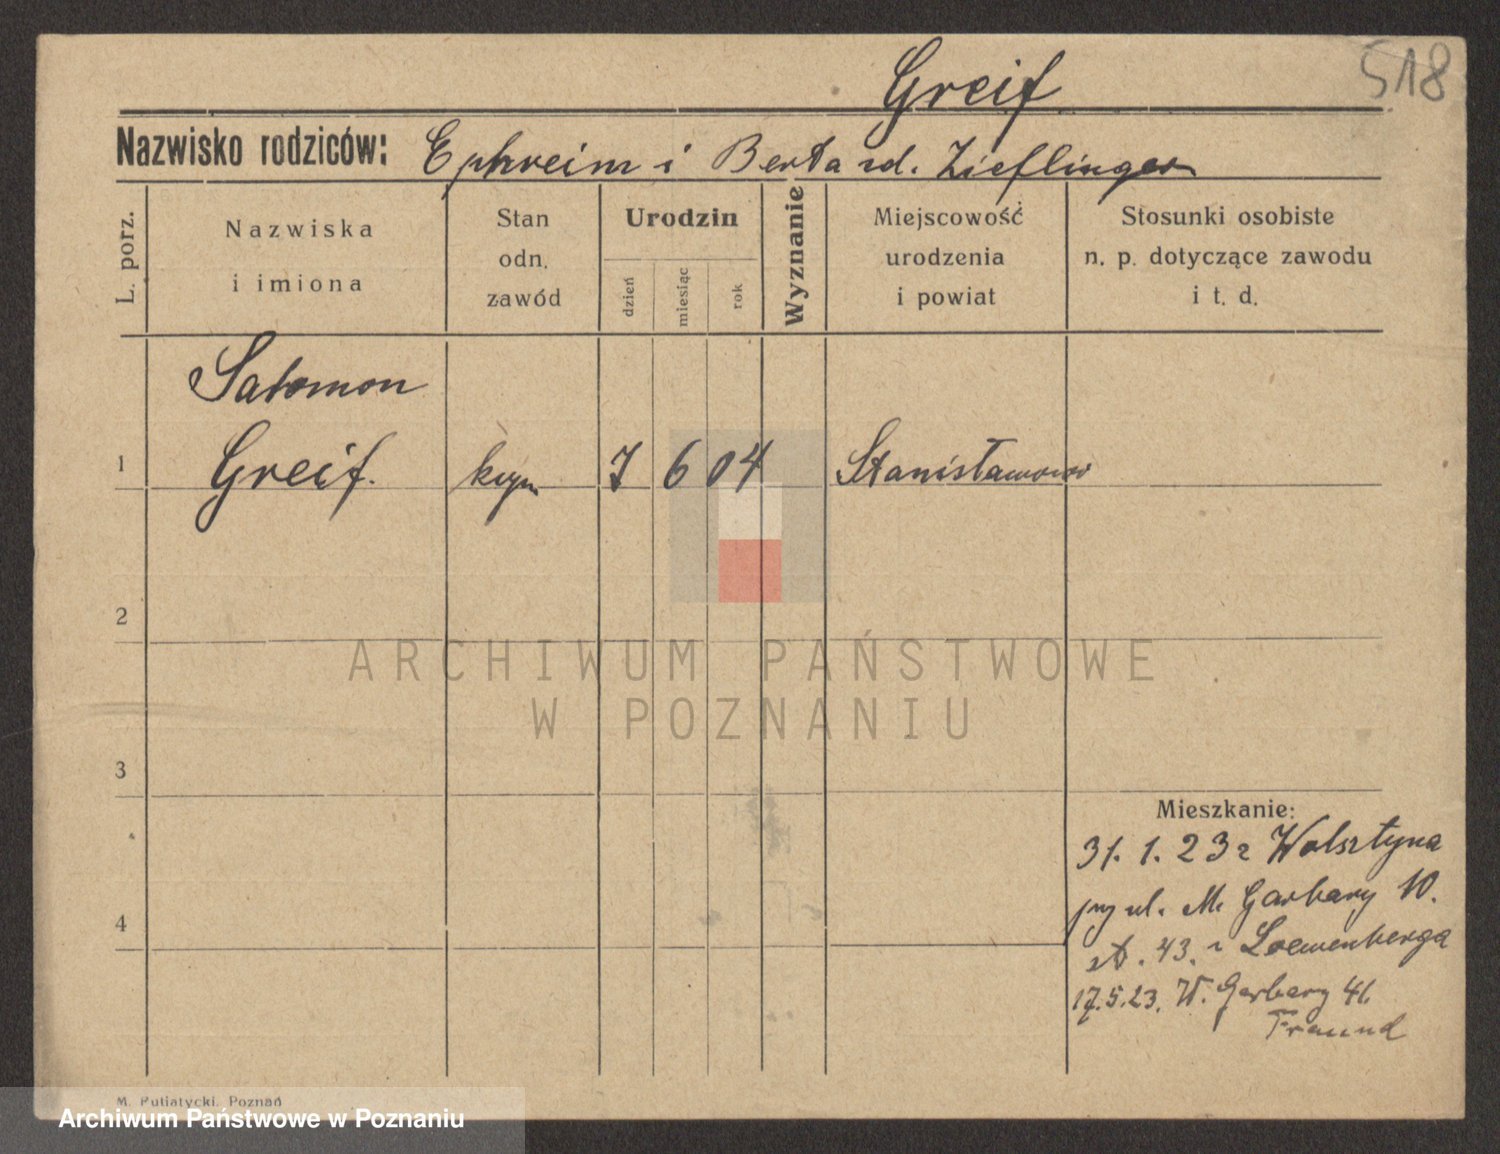 518
Greif
Nazwisko rodziców: Ephreim i Berta rd. Zieflinger
L. porz.
Nazwiska
i imiona
Stan
odn.
zawód
Urodzin
dzień
miesiąc
rok
Wyznanie
Miejscowość
urodzenia
i powiat
Stosunki osobiste
n. p. dotyczące zawodu
i t. d.
Salomon
1 Greif. 7 6 04 Stanisławow
2
ARCHIWUM PAŃSTWOWE
W POZNANIU
3
Mieszkanie:
31. 1. 23 z Wolsztyna
przy ul. M. Garbary 10.
4
st. 43. Loewenberga
17.5.23. W. Garbary 41.
Fraund
M. Putiatycki, Poznań
Archiwum Państwowe w Poznaniu